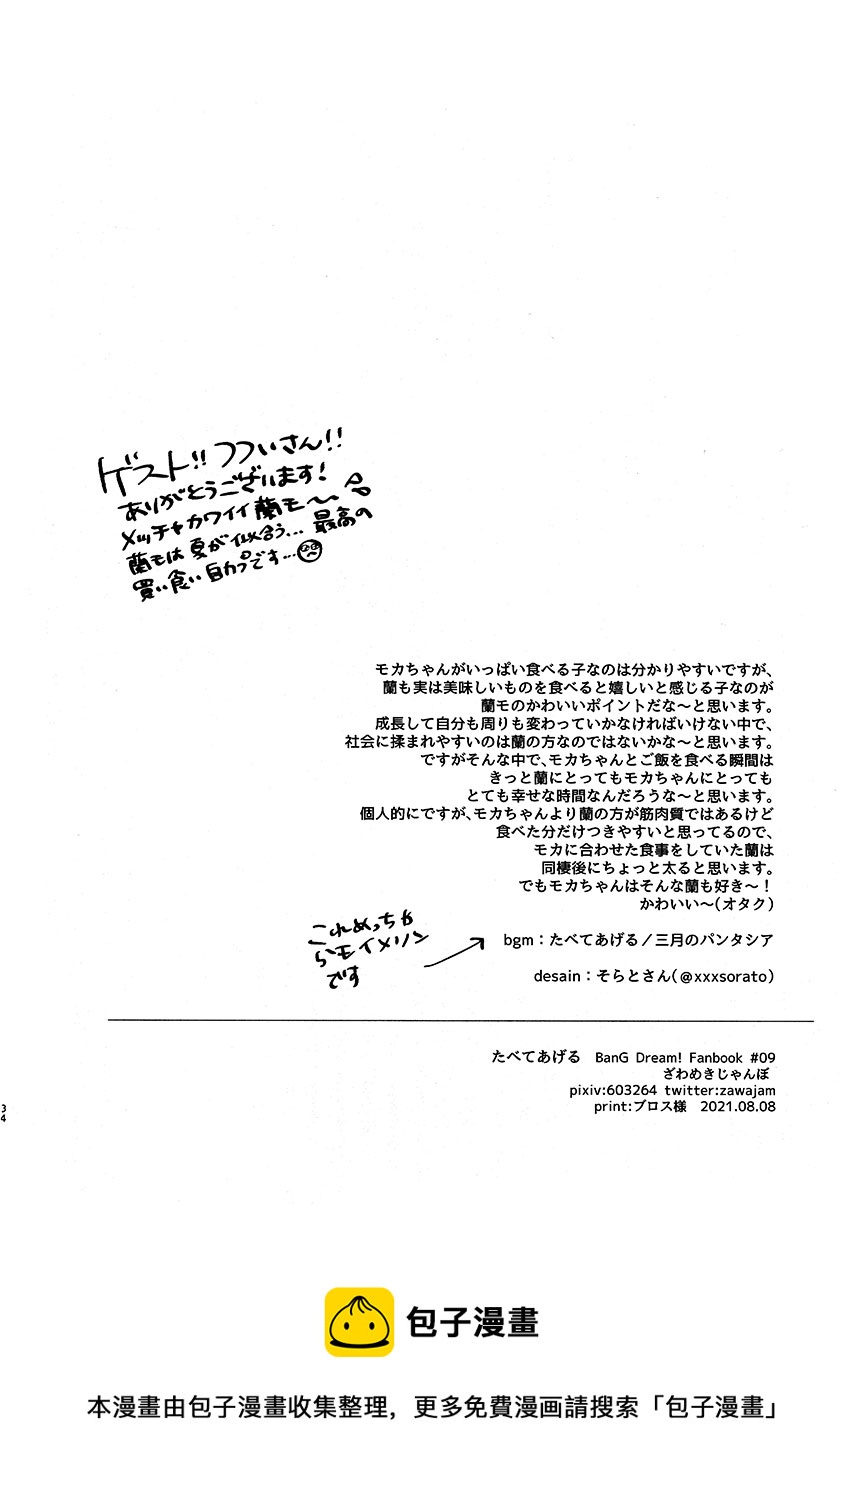 ゲスト!! つついさん!!
ありがとうございます!
メッチャカワイイ蘭モ〜
蘭モは夏が似合う… 最高の
買い食い自カプです…
モカちゃんがいっぱい食べる子なのは分かりやすいですが、
蘭も実は美味しいものを食べると嬉しいと感じる子なのが
蘭モのかわいいポイントだな〜と思います。
成長して自分も周りも変わっていかなければいけない中で、
社会に揉まれやすいのは蘭の方なのではないかな〜と思います。
ですがそんな中で、モカちゃんとご飯を食べる瞬間は
きっと蘭にとってもモカちゃんにとっても
とても幸せな時間なんだろうな〜と思います。
個人的にですが、モカちゃんより蘭の方が筋肉質ではあるけど
食べた分だけつきやすいと思ってるので、
モカに合わせた食事をしていた蘭は
同棲後にちょっと太ると思います。
でもモカちゃんはそんな蘭も好き〜！
かわいい〜（オタク）
これめっちゃ
らモイメソン
です
bgm：たべてあげる／三月のパンタシア
desain：そらとさん（@xxxsorato）
たべてあげる BanG Dream! Fanbook #09
ざわめきじゃんぼ
pixiv:603264 twitter:zawajam
print:ブロス様 2021.08.08
34
包子漫畫
本漫畫由包子漫畫收集整理，更多免費漫画請搜索「包子漫畫」